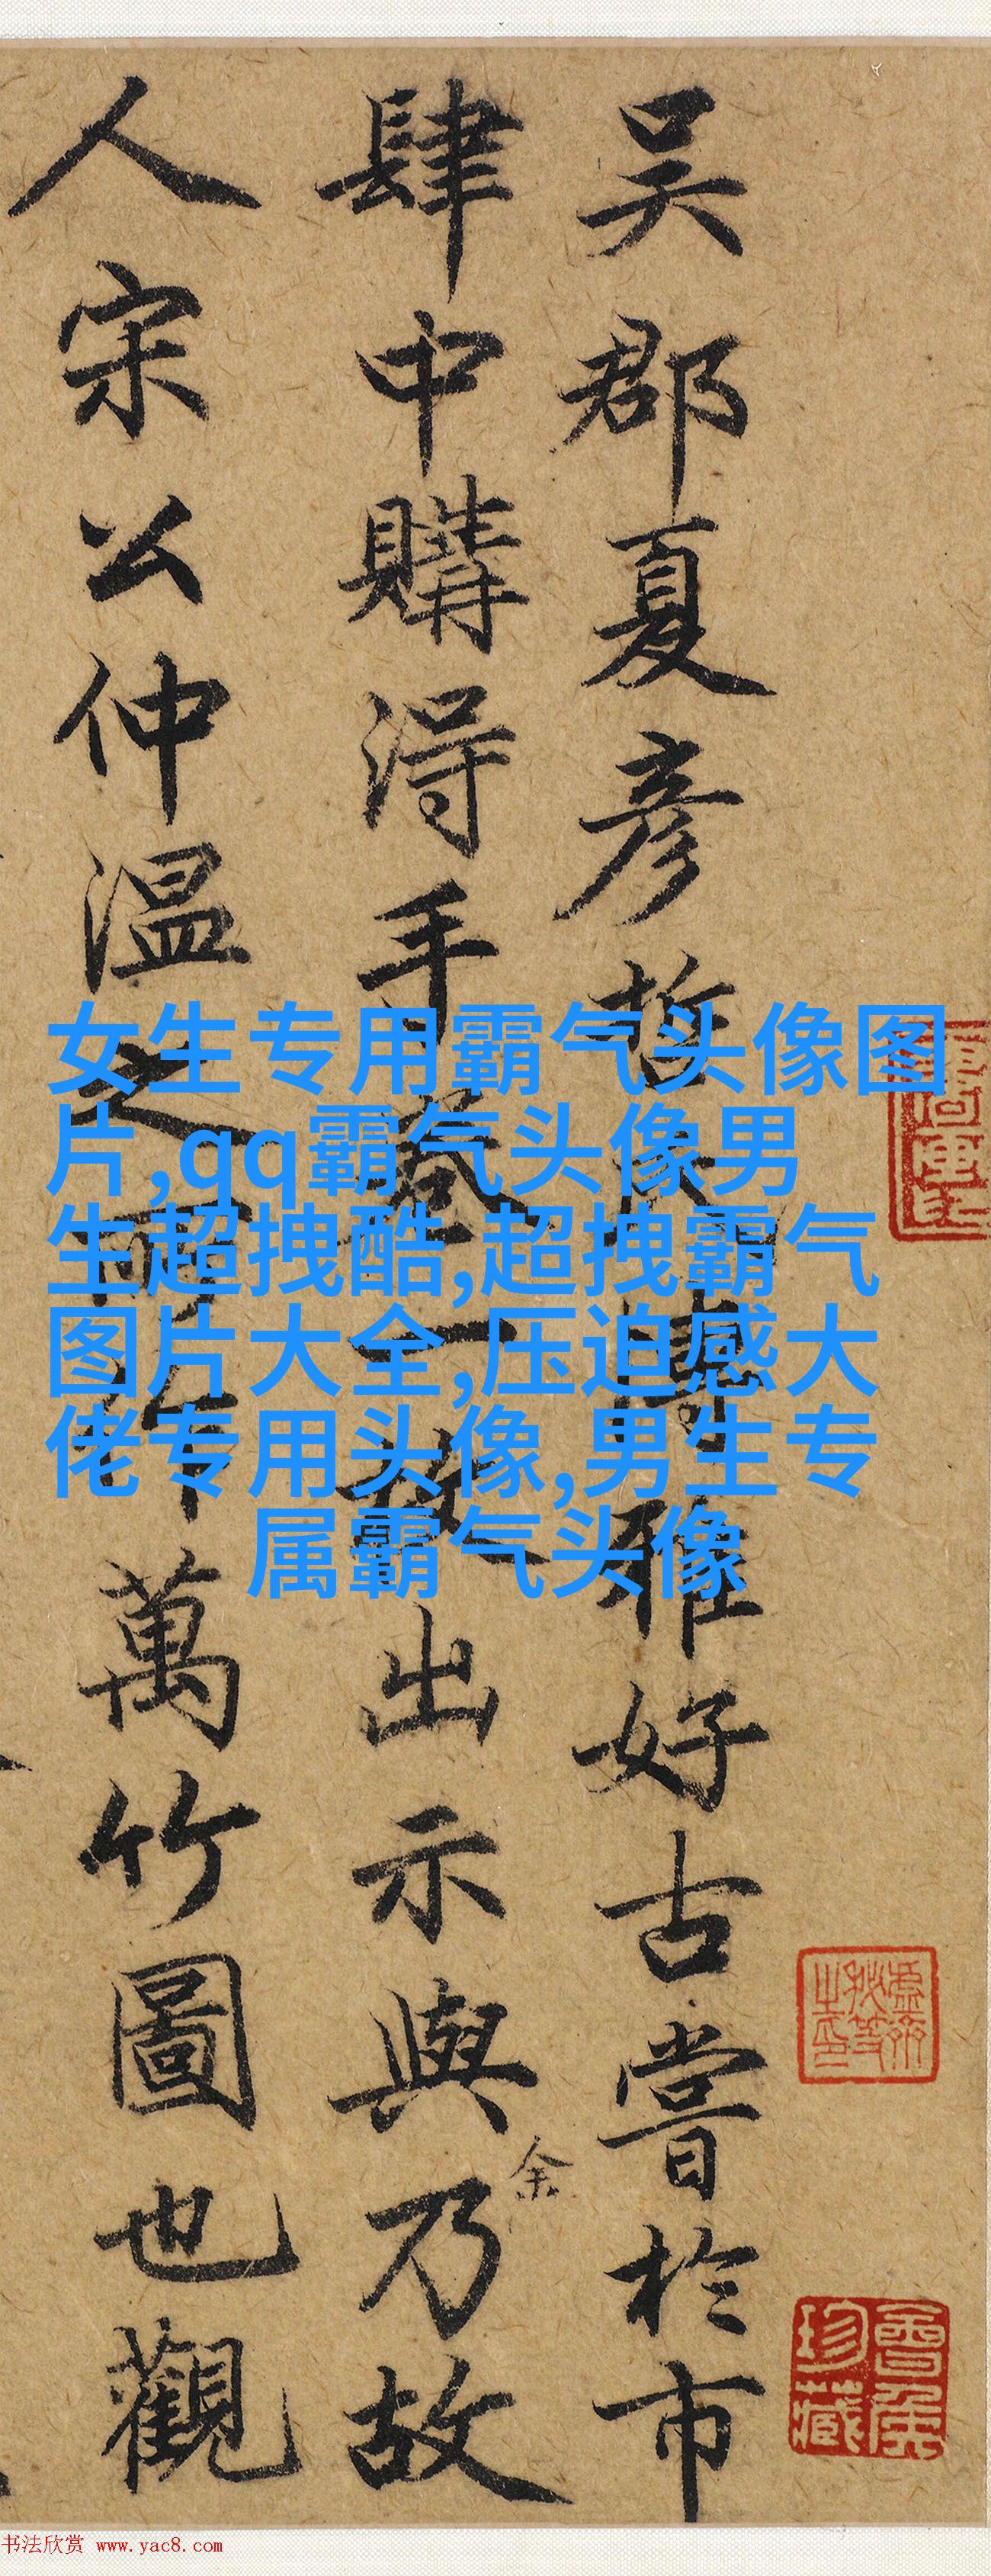 吴郡夏彦哲氏博雅好古嘗於市
肆中購得手卷一故出示與乃故
余
人宋公仲温之所作萬竹圖也觀
女生专用霸气头像图
片,qq霸气头像男
生超拽酷,超拽霸气
图片大全,压迫感大
佬专用头像,男生专
属霸气头像
虚齋
秋等
之印
會侯
珍藏
书法欣赏 www.yac8.com